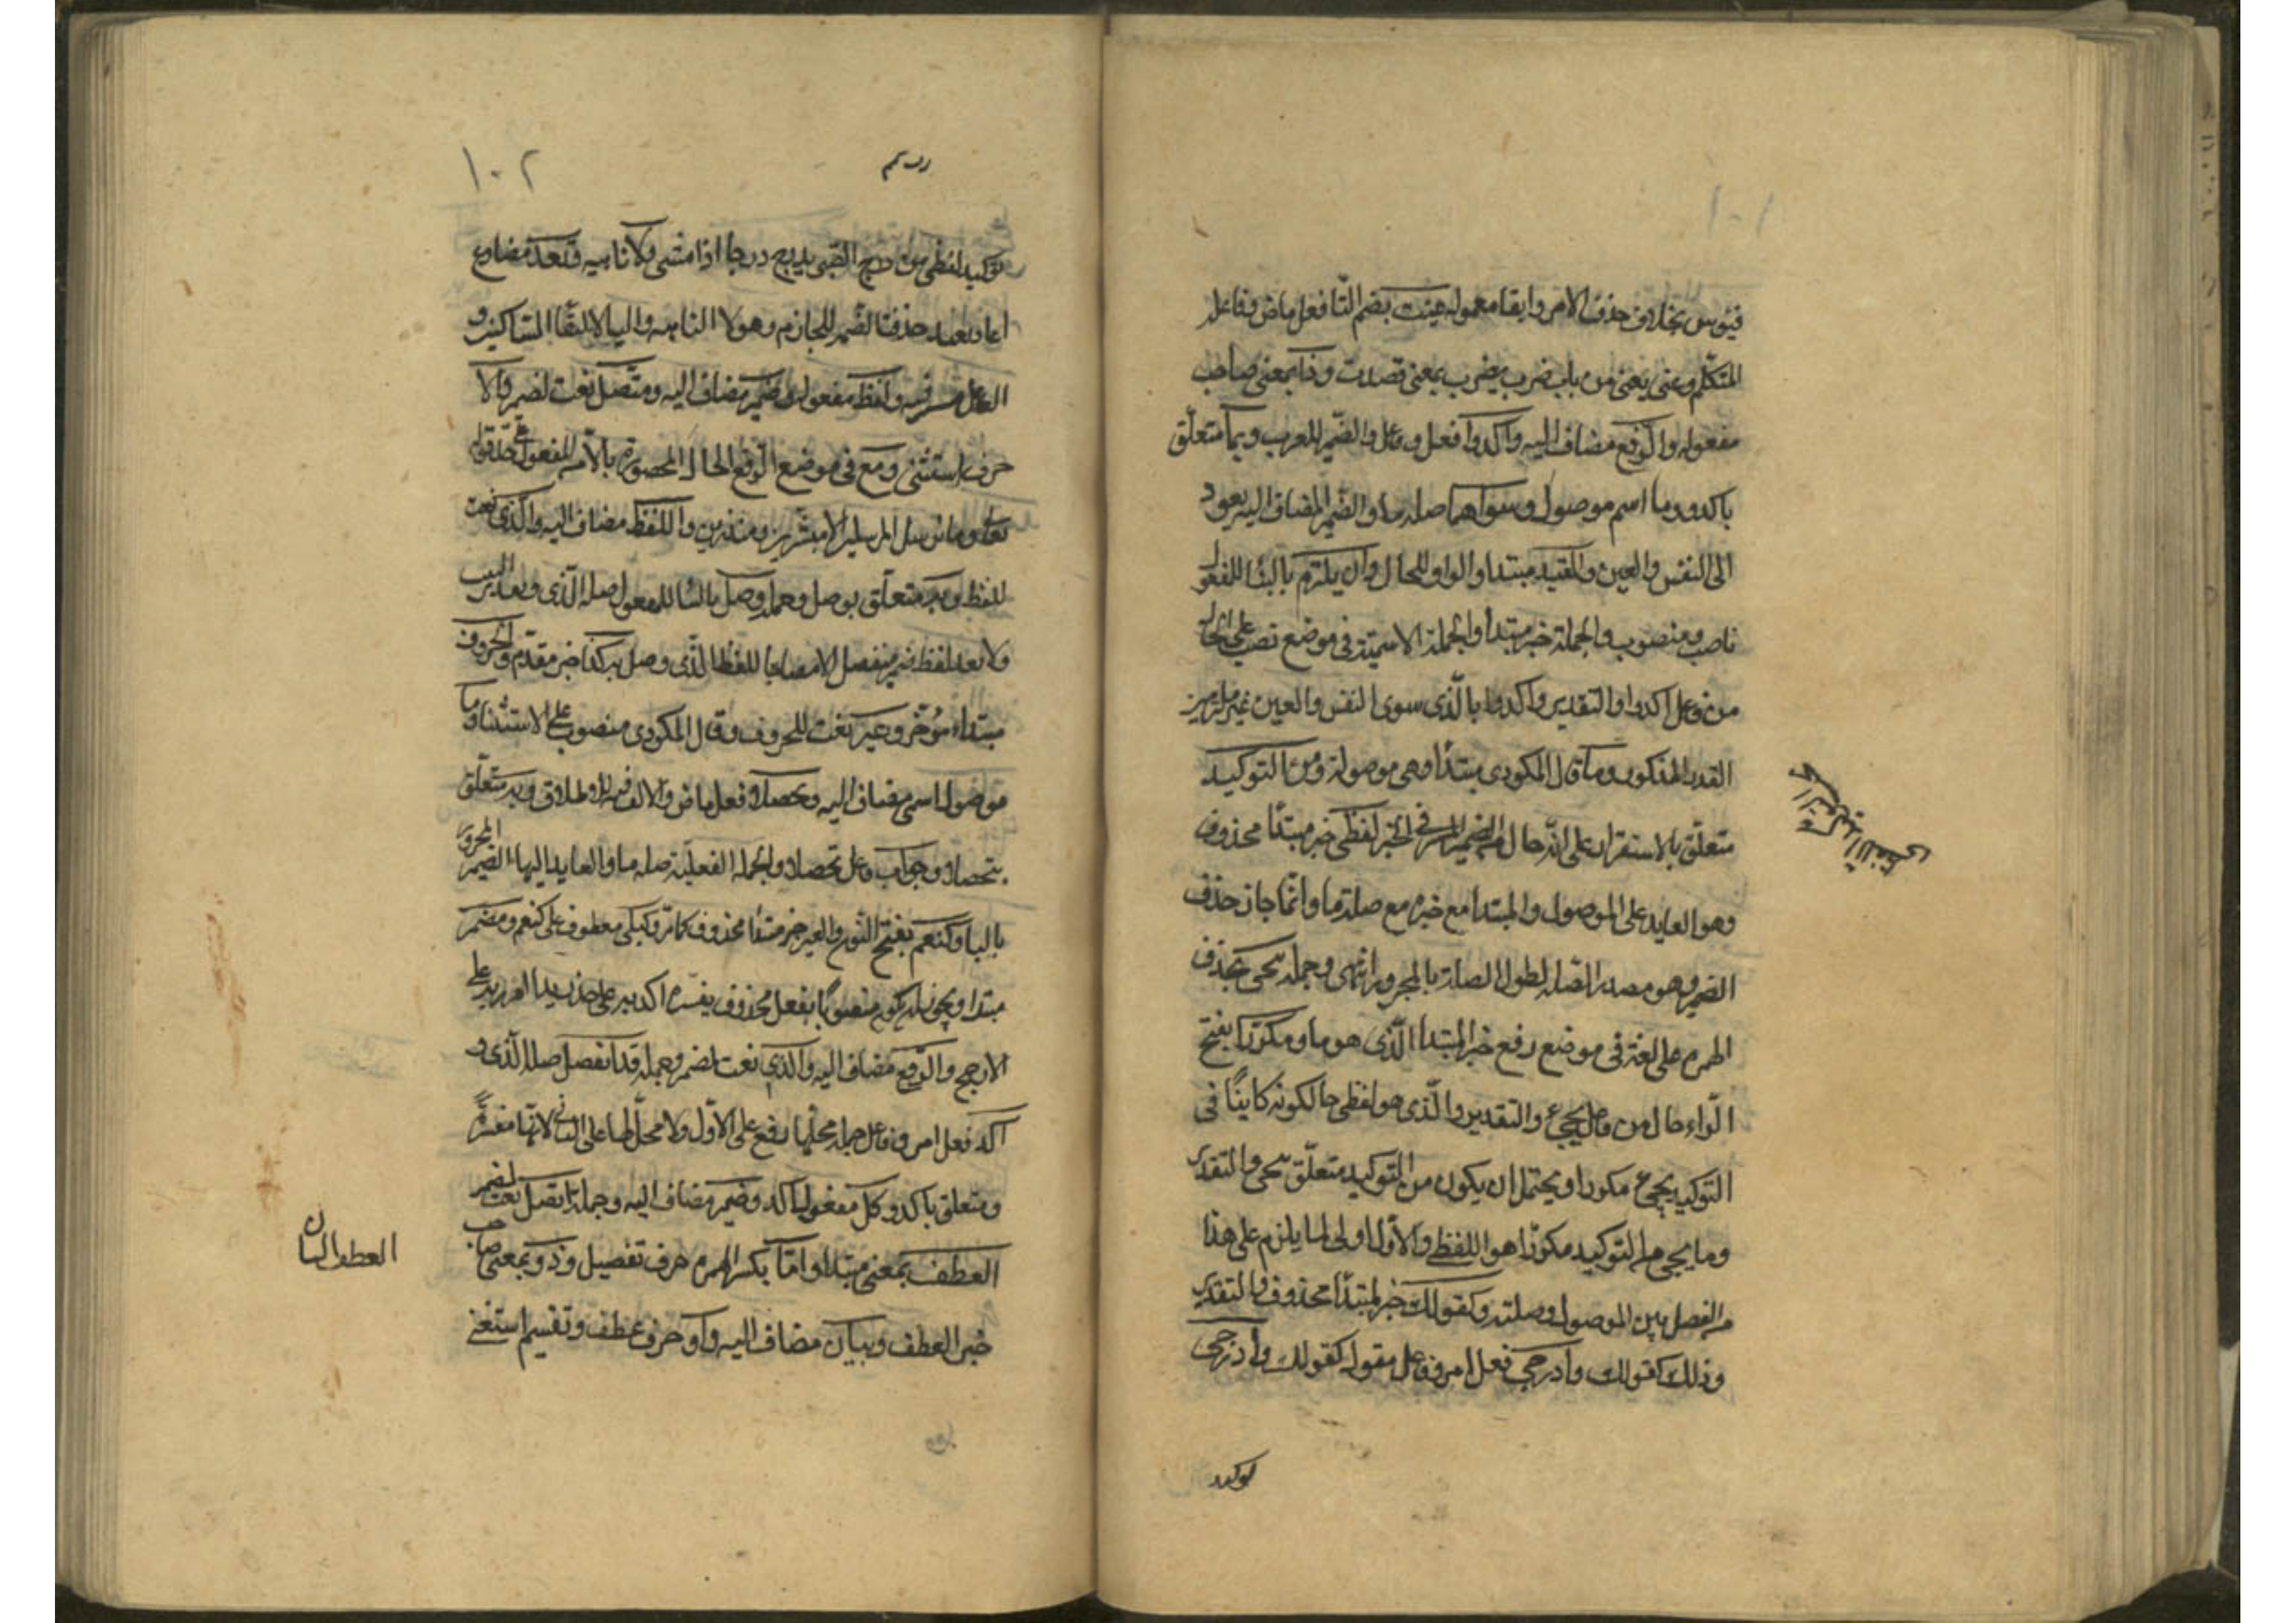 ١٠١
فيتوس بخلاف حذف الامر وابقا معموله عنيت بضم التا فعل ماض وفاعله
المتكلم وعنى يعنى من باب ضرب يضرب بمعنى قصدت وذا بمعنى صاحب
مفعوله والرفع مضاف اليه واكدوا فعل وفاعل والضمير للعرب وبما متعلق
باكدوا وما اسم موصول وسواهما صلة ما والضمير المضاف اليه يعود
الى النفس والعين والقيد مبتدا والواو للحال وان يلتزم بالبنا للمفعول
ناصب ومنصوب والجملة خبر مبتدأ والجملة الاسمية في موضع نصب على الحال
من فاعل اكدوا والتقدير واكدوا بالذى سوى النفس والعين غير ملتزمين
القيد المذكور وما قال المكودى مبتدأ وهى موصولة ومن التوكيد
متعلق بالاستقرار على انه حال من الضمير المستتر في الخبر لفظى خبر مبتدأ محذوف
وهو العايد على الموصول والمبتدا مع خبره مع صلة ما وانما جاز حذف
الضمير وهو صدر الصلة لطول الصلة بالمجرور انتهى وجملة يجى بحذف
الهمزة على لغة فى موضع رفع خبر المبتدا الذى هو ما ومكررا بفتح
الراء حال من فاعل يجىء والتقدير والذى هو لفظى حالكونه كاينًا فى
التوكيد يجىء مكررا ويحتمل ان يكون من التوكيد متعلق بيجى والتقدير
وما يجى من التوكيد مكررا هو اللفظى والاول اولى لما يلزم على هذا
من الفصل بين الموصول وصلته وكقولك خبر لمبتدأ محذوف والتقدير
وذلك كقولك وادرجى فعل امر وفاعل مقوله كقولك وادرجى
توكيد
١٠٢
توكيد لفظى من درج الصبى يدرج درجا اذا مشى ولا ناهية وتعد مضارع
اعاد يعيد حذفت الضمة للجازم وهو لا الناهية واليا لالتقا الساكنين و
الفاعل مستتر فيه ولفظ مفعوله وضمير مضاف اليه ومتصل نعت لضمير والا
حرف استثنى ومع فى موضع الرفع الحال المحصورة بالا من المفعول على حد قوله
تعالى وما نرسل المرسلين الا مبشرين ومنذرين واللفظ مضاف اليه والذى نعت
للفظ وبه متعلق بوصل وجملة وصل بالبنا للمفعول صلة الذى
ولا تعد لفظ ضمير متصل الا مصاحبا للفظ الذى وصل به كذا خبر مقدم والحروف
مبتداء مؤخر وغير نعت للحروف وقال المكودى منصوب على الاستثنا وما
موصول اسمى مضاف اليه وتحصلا فعل ماض والالف فيه للاطلاق وبه متعلق
بتحصلا وجواب فاعل تحصلا والجملة الفعلية صلة ما والعايد اليها الضمير المجرور
بالبا وكنعم بفتح النون والعين خبر مبتدا محذوف كما مر وكبلى معطوف على كنعم ومضمر
مبتدا ويجوز ان يكون منصوبًا بفعل محذوف يفسره اكد به على حد زيدا امرر به على
الارجح والرفع مضاف اليه والذى نعت لمضمر وجملة قد انفصل صلة الذى و
اكد فعل امر وفاعل جملة محلها رفع على الاول ولا محل لها على الثانى لانها مفسرة
ومتعلق باكد وكل مفعول اكد وضمير مضاف اليه وجملة اتصل نعت لضمير
العطف بمعنى مبتدا واما بكسر الهمزة حرف تفصيل وذو بمعنى صاحب
خبر العطف وبيان مضاف اليه واو حرف عطف وتقسيم استغنى
العطف البيان